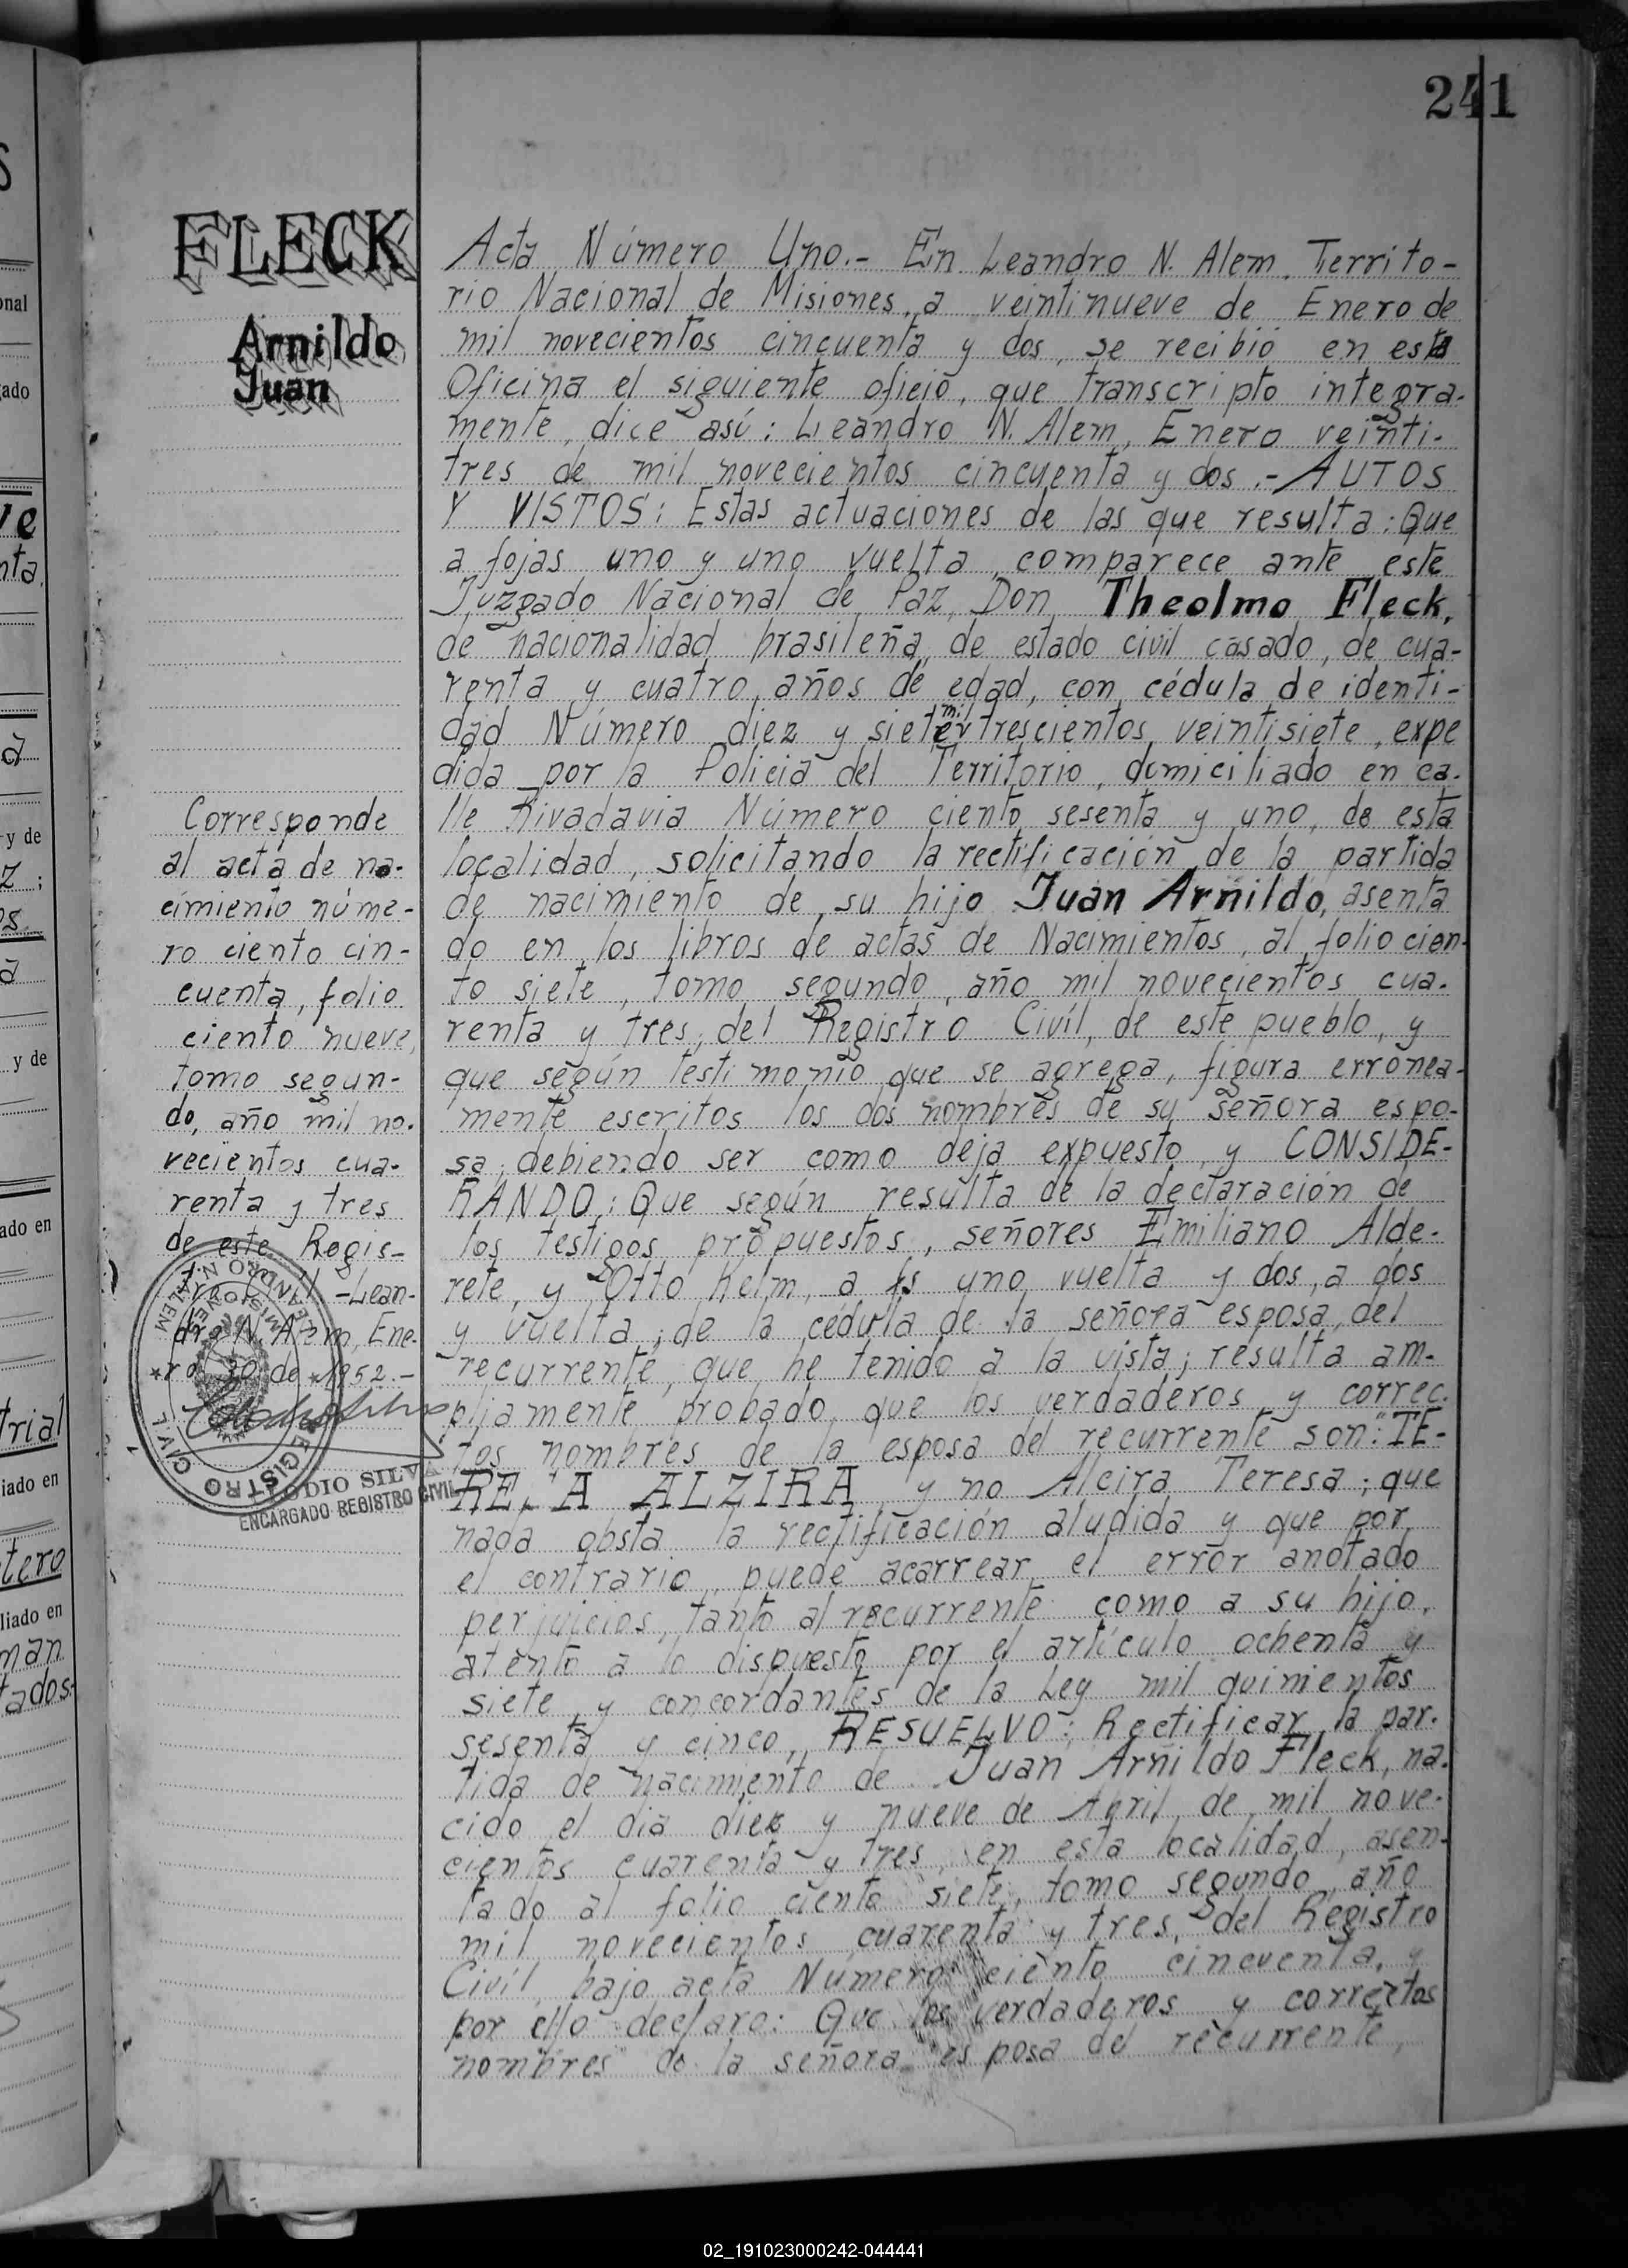 241
FLECK
Arnildo
Juan
Acta Número Uno.- En Leandro N. Alem, Territo-
rio Nacional de Misiones, a veintinueve de Enero de
mil novecientos cincuenta y dos, se recibió en esta
Oficina el siguiente oficio, que transcripto integra-
mente, dice así: Leandro N. Alem, Enero veinti-
tres de mil novecientos cincuenta y dos.- AUTOS
Y VISTOS: Estas actuaciones de las que resulta: Que
a fojas uno y uno vuelta, comparece ante este
Juzgado Nacional de Paz, Don Theolmo Fleck,
de nacionalidad brasileña, de estado civil casado, de cua-
renta y cuatro años de edad, con cédula de identi-
dad Número diez y siete mil trescientos veintisiete, expe
dida por la Policia del Territorio, domiciliado en ca-
lle Rivadavia Número ciento sesenta y uno, de esta
localidad, solicitando la rectificación de la partida
de nacimiento de su hijo Juan Arnildo, asenta
do en los libros de actas de Nacimientos, al folio cien-
to siete, tomo segundo, año mil novecientos cua-
renta y tres, del Registro Civil, de este pueblo, y
que según testimonio que se agrega, figura erronea-
mente escritos los dos nombres de su señora espo-
sa, debiendo ser como deja expuesto, y CONSIDE-
RANDO: Que según resulta de la declaración de
los testigos propuestos, señores Emiliano Alde-
rete, y Otto Kelm, a fs uno vuelta y dos, a dos
y vuelta; de la cédula de la señora esposa del
recurrente, que he tenido a la vista; resulta am-
pliamente probado, que los verdaderos y correc-
tos nombres de la esposa del recurrente son: "TE-
RE A ALZIRA, y no Alcira Teresa; que
nada obsta la rectificación aludida y que por
el contrario, puede acarrear el error anotado
perjuicios, tanto al recurrente como a su hijo,
atento a lo dispuesto por el artículo ochenta y
siete y concordantes de la Ley mil quinientos
sesenta y cinco, RESUELVO: Rectificar la par-
tida de nacimiento de Juan Arnildo Fleck, na-
cido el dia diez y nueve de Abril de mil nove-
cientos cuarenta y tres, en esta localidad, asen-
tado al folio ciento siete, tomo segundo, año
mil novecientos cuarenta y tres, del Registro
Civil, bajo acta Número ciento cincuenta, y
por ello declaro: Que los verdaderos y correctos
nombres de la señora esposa del recurrente,
Corresponde
al acta de na-
cimiento núme-
ro ciento cin-
cuenta, folio
ciento nueve,
tomo segun-
do, año mil no-
vecientos cua-
renta y tres
de este Regis-
-Lean-
dro N. Alem, Ene-
ro 30 de 1952.-
REGISTRO CIVIL
LEANDRO N. ALEM
MISIONES
ODIO SILVA
ENCARGADO REGISTRO CIVIL
onal
gado
ve
nta
y de
z;
os
a
y de
ado en
trial
iado en
tero
liado en
man
tados.
02_191023000242-044441